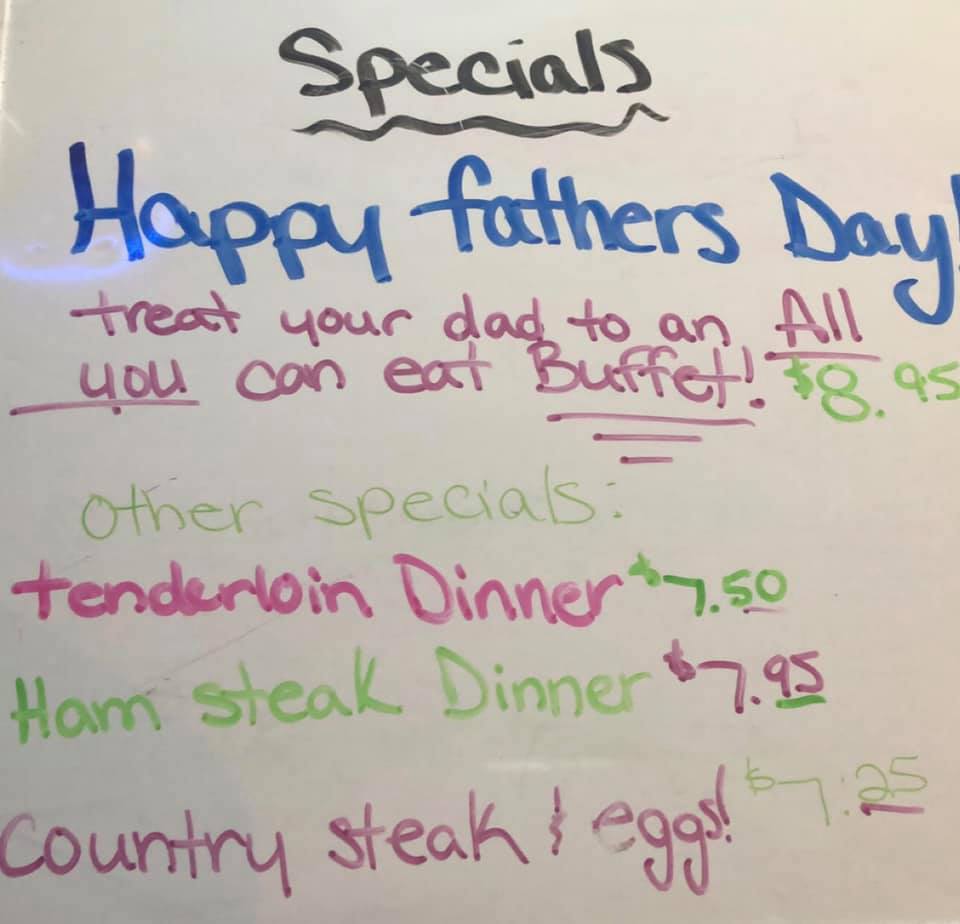 Specials
Happy fathers Day!
treat your dad to an All
you can eat Buffet! $8.95
other specials:
tenderloin Dinner $7.50
Ham steak Dinner $7.95
Country steak & eggs! $7.25